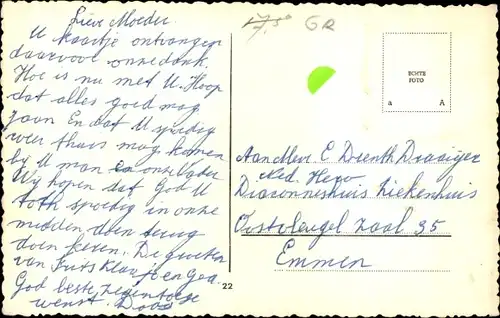 Lieve Moeder
U kaartje ontvangen
daarvoor onze dank.
Hoe is nu met U. Hoop
dat alles goed mag
gaan En dat U spoedig
weer thuis mag komen
by U man en onze Vader
Wij hopen dat God U
toth spoedig in onze
midden doen terug
doen keren. De groeten
van Frits Klaasje en Gea.
God beste zegen toege
wenst.
17,50 GR
ECHTE
FOTO
a A
Aan Mevr. E Drenth Draaijer
Ned. Herv
Diaconneshuis Ziekenhuis
Oostvleugel zaal 35
Emmen
22